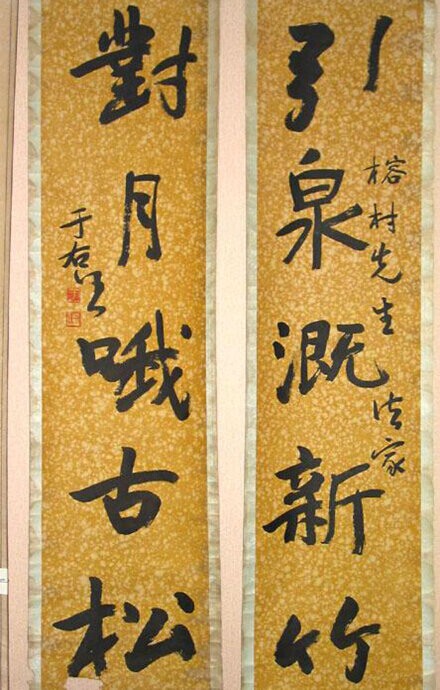 引泉溉新竹
榕村先生法家
對月哦古松
于右任